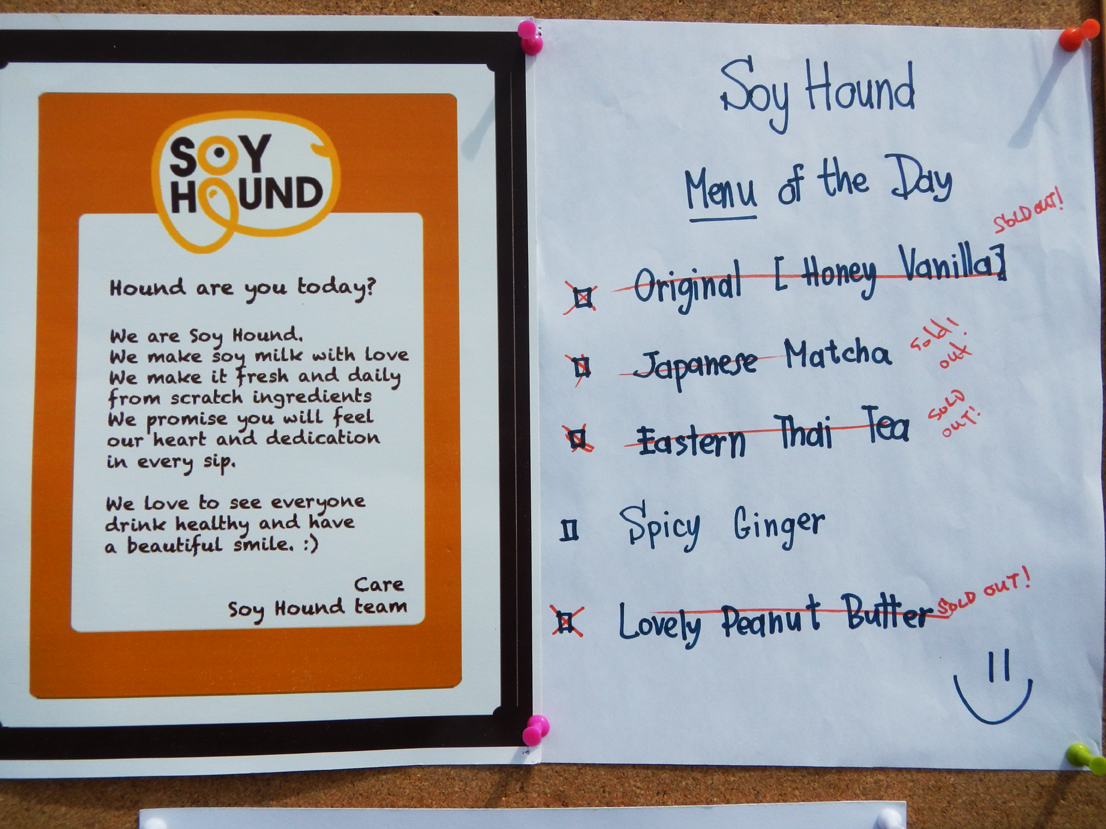 SOY
HOUND
Hound are you today?
We are Soy Hound.
We make soy milk with love
We make it fresh and daily
from scratch ingredients
We promise you will feel
our heart and dedication
in every sip.
We love to see everyone
drink healthy and have
a beautiful smile. :)
Care
Soy Hound team
Soy Hound
Menu of the Day
SOLD OUT!
Original [ Honey Vanilla]
Japanese Matcha
Sold!
out
Eastern Thai Tea
SOLD
OUT!
Spicy Ginger
Lovely Peanut Butter SOLD OUT!